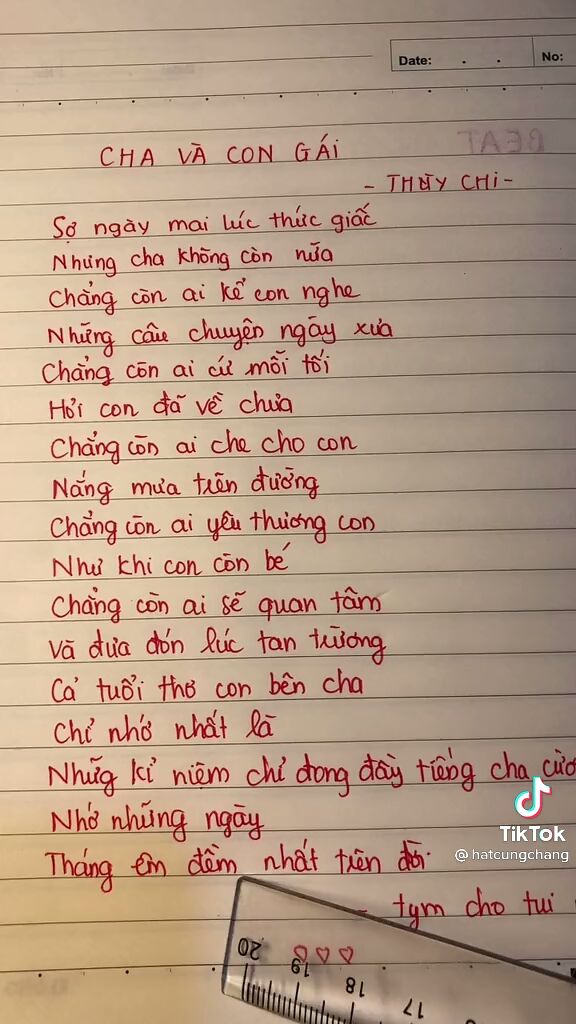 Date: . . No:
BEAT
CHA VÀ CON GÁI
- THÙY CHI -
Sợ ngày mai lúc thức giấc
Nhưng cha không còn nữa
Chẳng còn ai kể con nghe
Những câu chuyện ngày xưa
Chẳng còn ai cứ mỗi tối
Hỏi con đã về chưa
Chẳng còn ai che cho con
Nắng mưa trên đường
Chẳng còn ai yêu thương con
Như khi con còn bé
Chẳng còn ai sẽ quan tâm
Và đưa đón lúc tan trường
Cả tuổi thơ con bên cha
Chỉ nhớ nhất là
Những kỉ niệm chỉ đong đầy tiếng cha cườ
Nhớ những ngày
Tháng êm đềm nhất trên đời
- tym cho tui
♡ ♡ ♡
20 19 18 17
TikTok
@hatcungchang